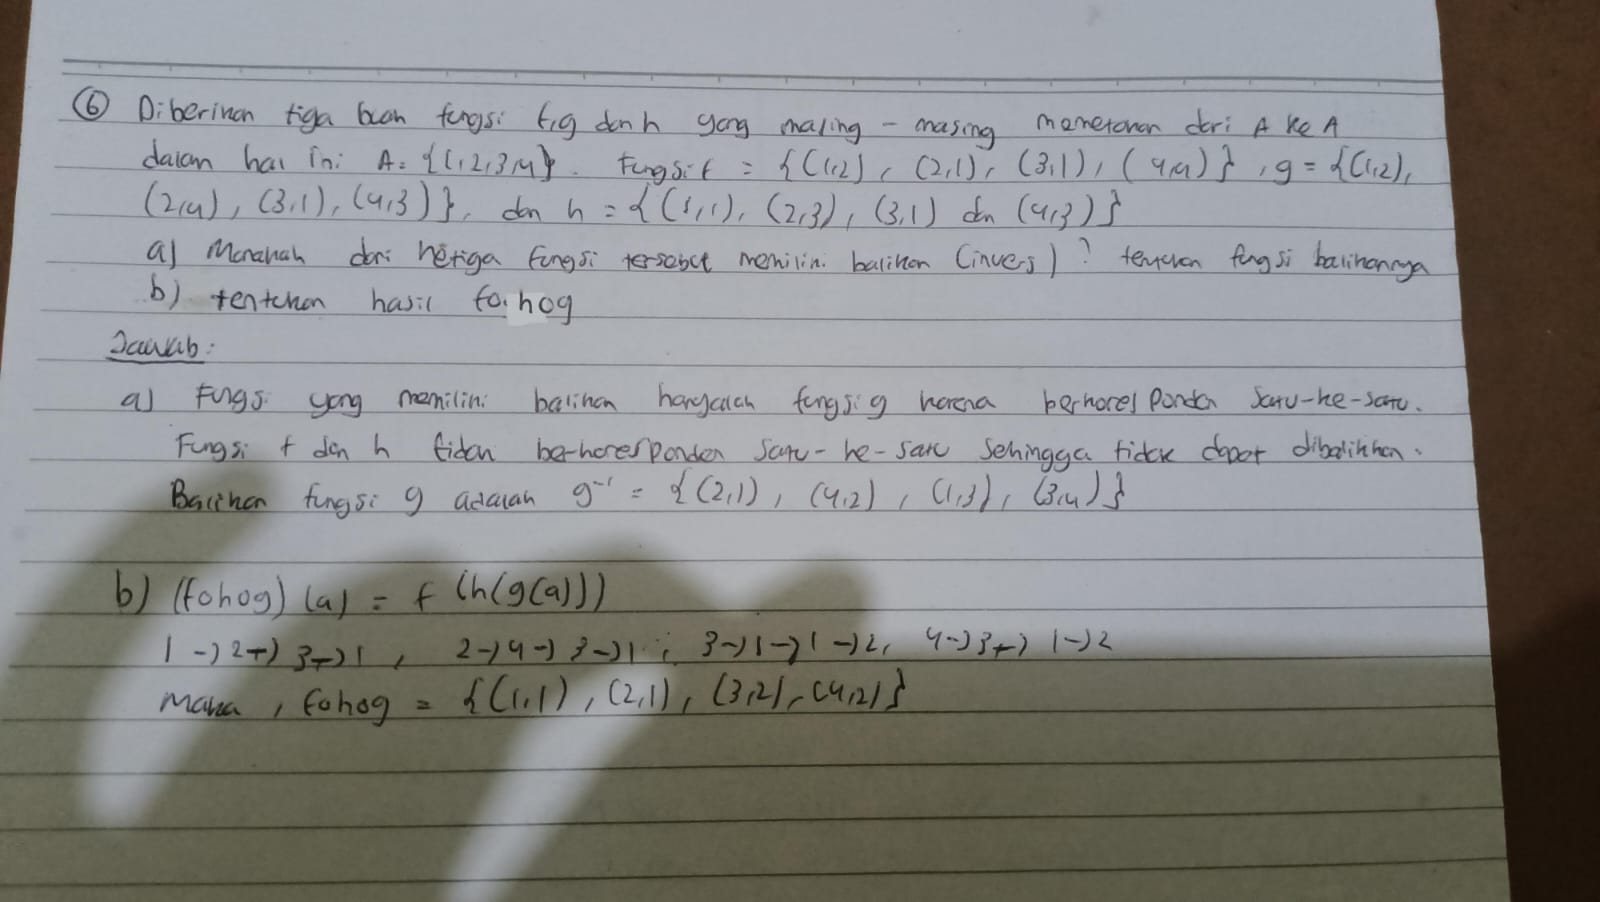 ⑥ Diberikan tiga buah fungsi f,g dan h yang masing - masing memetakan dari A ke A
dalam hal ini A = {1,2,3,4}. Fungsi f = {(1,2), (2,1), (3,1), (4,4)}, g = {(1,2),
(2,4), (3,1), (4,3)}, dan h = {(1,1), (2,3), (3,1) dan (4,3)}
a) Manakah dari ketiga fungsi tersebut memiliki balikan (invers)? tentukan fungsi balikannya
b) tentukan hasil fohog
Jawab:
a) Fungsi yang memiliki balikan hanyalah fungsi g karena berkoresponden satu-ke-satu.
Fungsi f dan h tidak berkoresponden satu-ke-satu sehingga tidak dapat dibalikkan.
Balikan fungsi g adalah g⁻¹ = {(2,1), (4,2), (1,3), (3,4)}
b) (fohog) (a) = f (h(g(a)))
1 → 2 → 3 → 1, 2 → 4 → 3 → 1; 3 → 1 → 1 → 2, 4 → 3 → 1 → 2
maka, fohog = {(1,1), (2,1), (3,2), (4,2)}